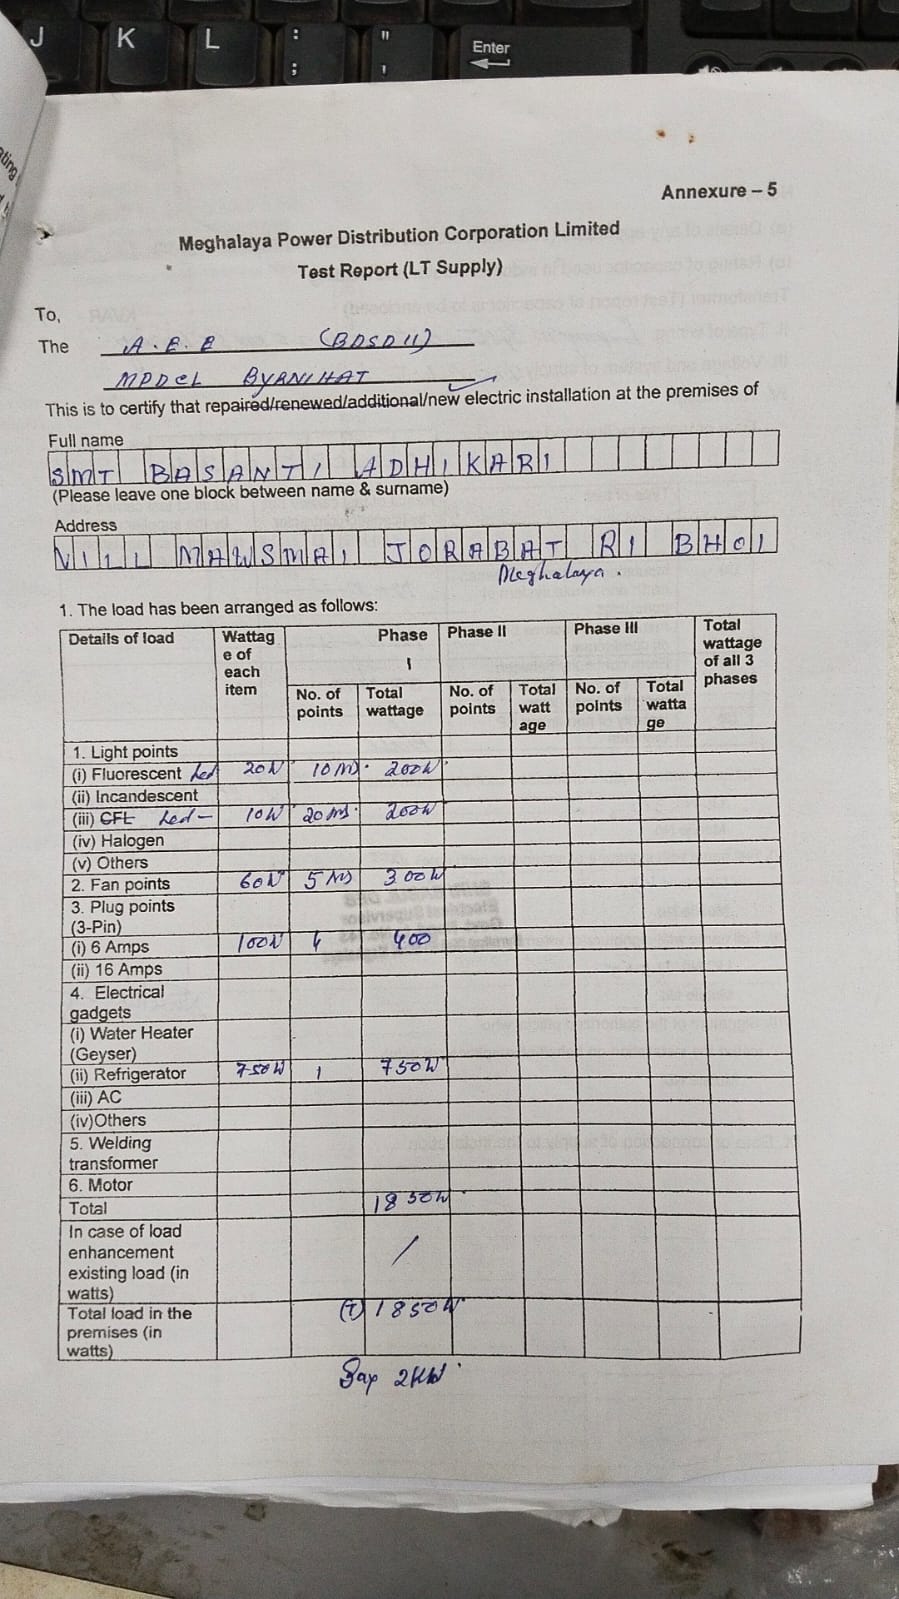 J K L : ; " ' Enter
Annexure – 5
Meghalaya Power Distribution Corporation Limited
Test Report (LT Supply)
To,
The A.E.E (BDSD II)
MPDCL BYRNIHAT
This is to certify that repaired/renewed/additional/new electric installation at the premises of
Full name
SMT BASANTI ADHIKARI
(Please leave one block between name & surname)
Address
VILL MAWSMAI JORABAT RI BHOI
Meghalaya.
1. The load has been arranged as follows:
Details of load Wattag e of each item Phase I Phase II Phase III Total wattage of all 3 phases
No. of points Total wattage No. of points Total watt age No. of points Total watta ge
1. Light points
(i) Fluorescent Led 20W 10 200W
(ii) Incandescent
(iii) CFL Led – 10W 20 200W
(iv) Halogen
(v) Others
2. Fan points 60W 5 300W
3. Plug points
(3-Pin)
(i) 6 Amps 100W 4 400
(ii) 16 Amps
4. Electrical
gadgets
(i) Water Heater
(Geyser)
(ii) Refrigerator 750W 1 750W
(iii) AC
(iv)Others
5. Welding
transformer
6. Motor
Total 1850W
In case of load
enhancement /
existing load (in
watts)
Total load in the (T) 1850W
premises (in
watts)
Say 2KW